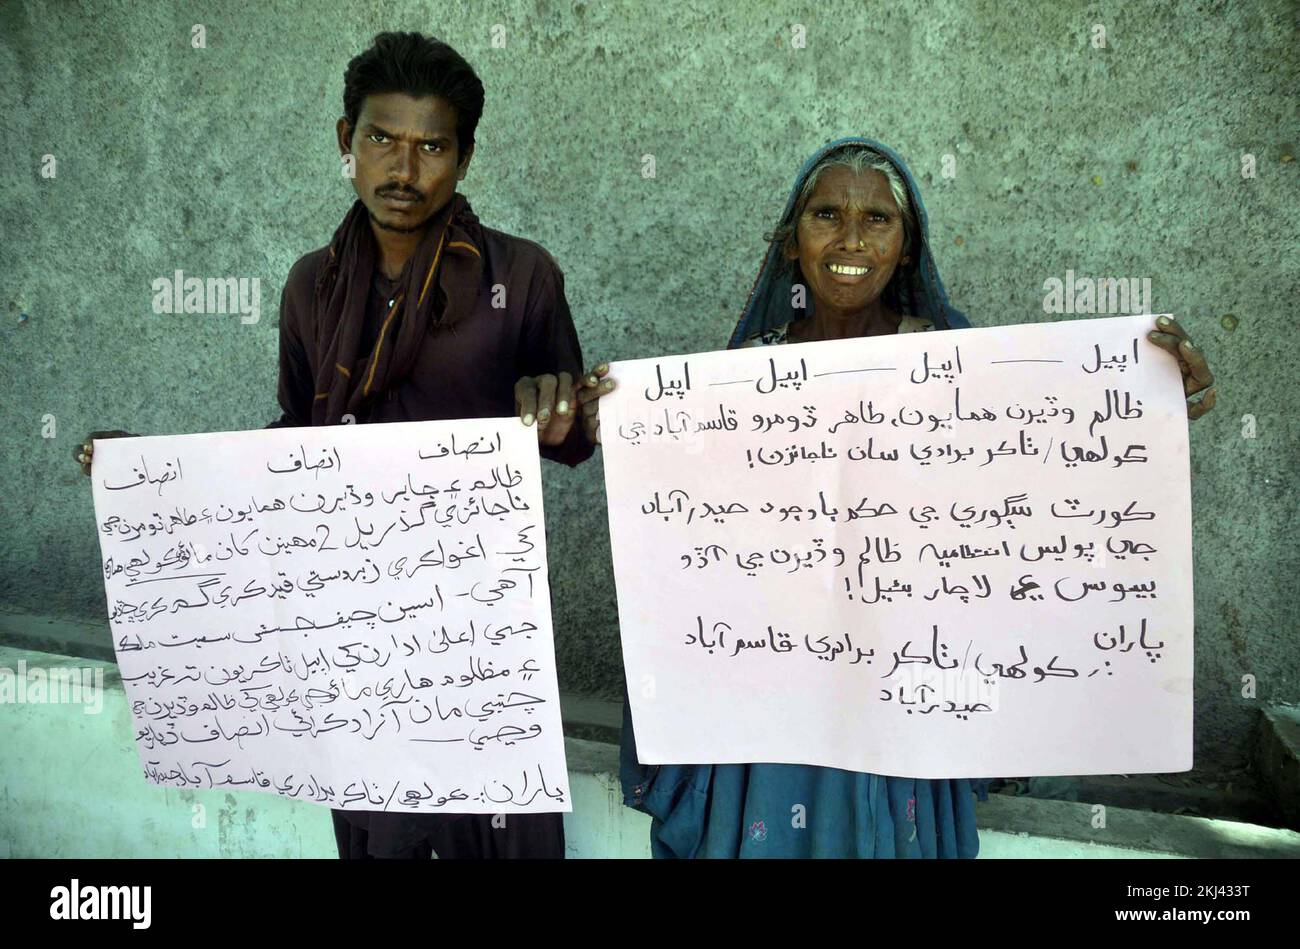 انصاف انصاف انصاف
ظالم ۽ جابر وڏيرن همايون ۽ طاهر ڏومرن جي
ناجائزي گذريل 2 مهينن کان
کي اغوا ڪري زبردستي قيد ڪري گم ڪري ڇڏيو
آهي - اسين چيف جسٽس سميت ملڪ
جي اعليٰ ادارن کي اپيل ٿا ڪريون تہ غريب
۽ مظلوم هاري مائوجي ڪولهي کي ظالم وڏيرن جي
چنبي مان آزاد ڪرائي انصاف ڏياريو
وڃي
پاران:. ڪولهي/ٺاڪر برادري قاسم آباد حيدرآباد
اپيل — اپيل — اپيل — اپيل
ظالم وڏيرن همايون، طاهر ڏومرو قاسم آباد جي
ڪولهي/ٺاڪر برادري سان ناجائزن!
ڪورٽ سڳوري جي حڪم باوجود حيدرآباد
جي پوليس انتظاميه ظالم وڏيرن جي آڏو
بيوس ۽ لاچار بڻيل!
پاران
:. ڪولهي/ٺاڪر برادري قاسم آباد
حيدرآباد
alamy
Image ID: 2KJ433T
www.alamy.com